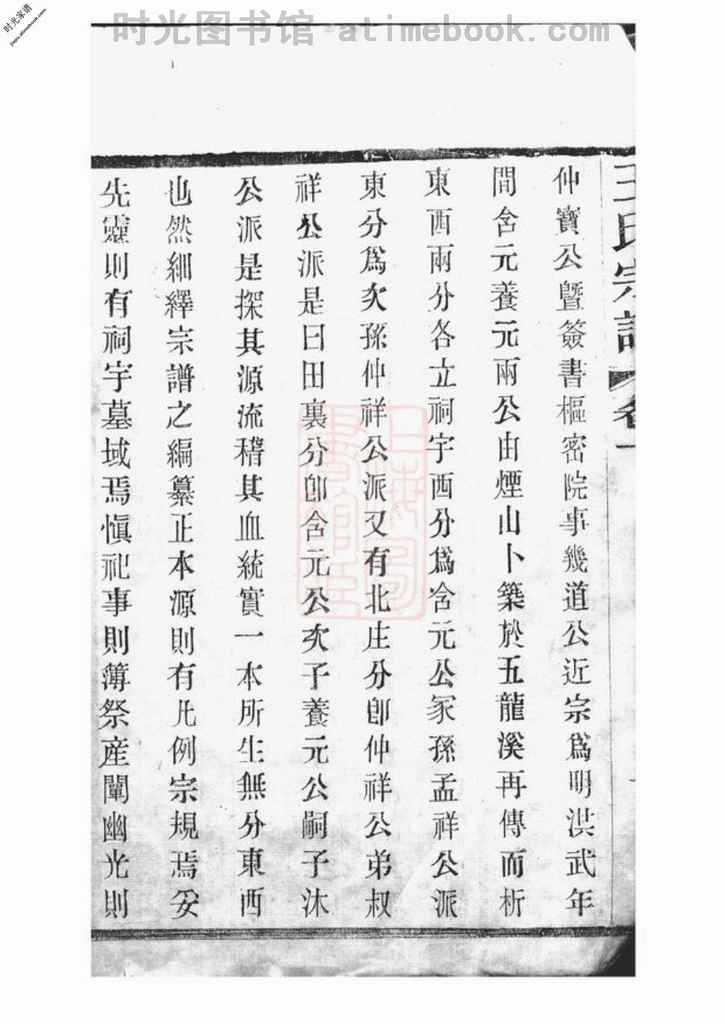 时光图书馆 atimebook.com
时光家谱
王氏宗譜 卷一
仲寶公曁簽書樞密院事幾道公近宗爲明洪武年
間含元養元兩公由煙山卜築於五龍溪再傳而析
東酉兩分各立祠宇酉分爲含元公冢孫孟祥公派
東分爲次孫仲祥公派又有北庄分卽仲祥公弟叔
祥公派是曰田裏分卽含元公次子養元公嗣子沐
公派是探其源流稽其血統實一本所生無分東西
也然細繹宗譜之編纂正本源則有凡例宗規焉妥
先靈則有祠宇墓域焉愼祀事則簿祭産闡幽光則